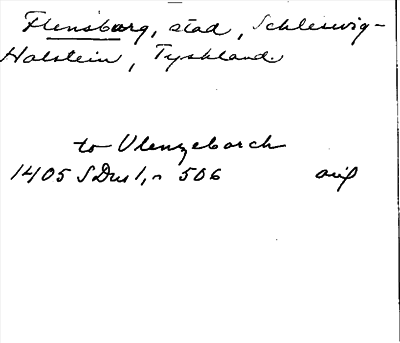 Flensburg, stad, Schleswig-
Holstein, Tyskland.
to Vlenzeborch
1405 SDns 1, n 506 orig